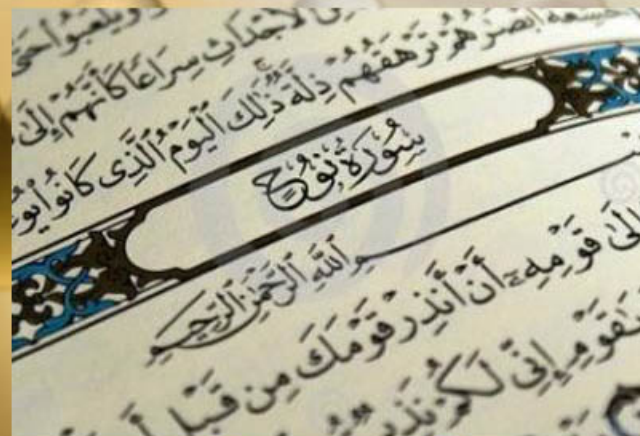 وَيَلْعَبُوا۟ حَتَّ
ٱلْأَجْدَاثِ سِرَاعًا كَأَنَّهُمْ إِلَىٰ
خَٰشِعَةً أَبْصَٰرُهُمْ تَرْهَقُهُمْ ذِلَّةٌ ۚ ذَٰلِكَ ٱلْيَوْمُ ٱلَّذِى كَانُوا۟
سُورَةُ نُوحٍ
ٱللَّهِ ٱلرَّحْمَٰنِ ٱلرَّحِيمِ
إِلَىٰ قَوْمِهِۦٓ أَنْ أَنذِرْ قَوْمَكَ مِن قَبْلِ
يَٰقَوْمِ إِنِّى لَكُمْ نَذِيرٌ